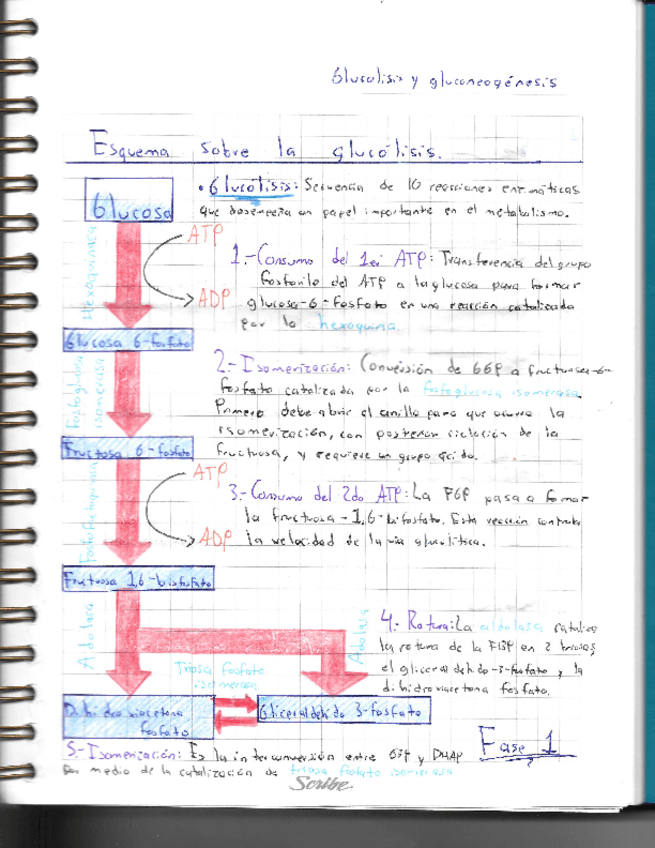 Glucólisis y gluconeogénesis
Esquema sobre la glucólisis.
Glucosa
• Glucólisis: Secuencia de 10 reacciones enzimáticas
que desempeña un papel importante en el metabolismo.
Hexoquinasa
ATP
ADP
1.- Consumo del 1er ATP: Transferencia del grupo
fosforilo del ATP a la glucosa para formar
glucosa-6-fosfato en una reacción catalizada
por la hexoquina
Glucosa 6-fosfato
Fosfoglucosa
isomerasa
2.- Isomerización: Conversión de G6P a
fosfato catalizada por la fosfoglucosa isomerasa.
Primero debe abrir el anillo para que ocurra la
isomerización, con posterior ciclación de la
fructosa, y requiere un grupo ácido.
Fructosa 6-fosfato
ATP
ADP
3.- Consumo del 2do ATP: La F6P pasa a formar
la fructosa-1,6-bifosfato. Esta reacción controla
la velocidad de la vía glucolítica.
Fructosa 1,6-bisfosfato
Adolasa
Adolasa
4.- Rotura: La aldolasa cataliza
la rotura de la FBP en 2 triosas,
el gliceraldehido-3-fosfato y la
dihidroxiacetona fosfato.
Triosa fosfato
isomerasa
Dihidroxiacetona
fosfato
Gliceraldehido 3-fosfato
5.- Isomerización: Es la interconversión entre G3P y DHAP
por medio de la catalización de triosa fosfato isomerasa
Fase 1
Scribe